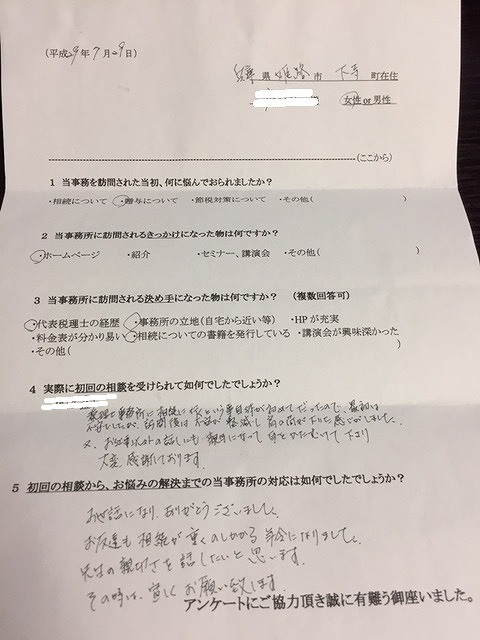 (平成29年7月29日)
兵庫県姫路市下寺町在住
女性or男性
(ここから)
1 当事務を訪問された当初、何に悩んでおられましたか？
・相続について ・贈与について ・節税対策について ・その他( )
2 当事務所に訪問されるきっかけになった物は何ですか？
・ホームページ ・紹介 ・セミナー、講演会 ・その他( )
3 当事務所に訪問される決め手になった物は何ですか？ (複数回答可)
・代表税理士の経歴 ・事務所の立地(自宅から近い等) ・HPが充実
・料金表が分かり易い ・相続についての書籍を発行している ・講演会が興味深かった
・その他( )
4 実際に初回の相談を受けられて如何でしたでしょうか？
税理士事務所に相続に伺うという事自体が初めてだったので、最初は
不安でしたが、訪問後は不安が軽減して肩の荷が下りた感じがしました。
又、お仕事以外の話しにも親身になって耳をかたむけて下さり
大変感謝しております。
5 初回の相談から、お悩みの解決までの当事務所の対応は如何でしたでしょうか？
お世話になり、ありがとうございました。
お友達も相続が重くのしかかる年令になりました。
先生の親切さを話したいと思います。
その時は、宜しくお願い致します。
アンケートにご協力頂き誠に有難う御座いました。